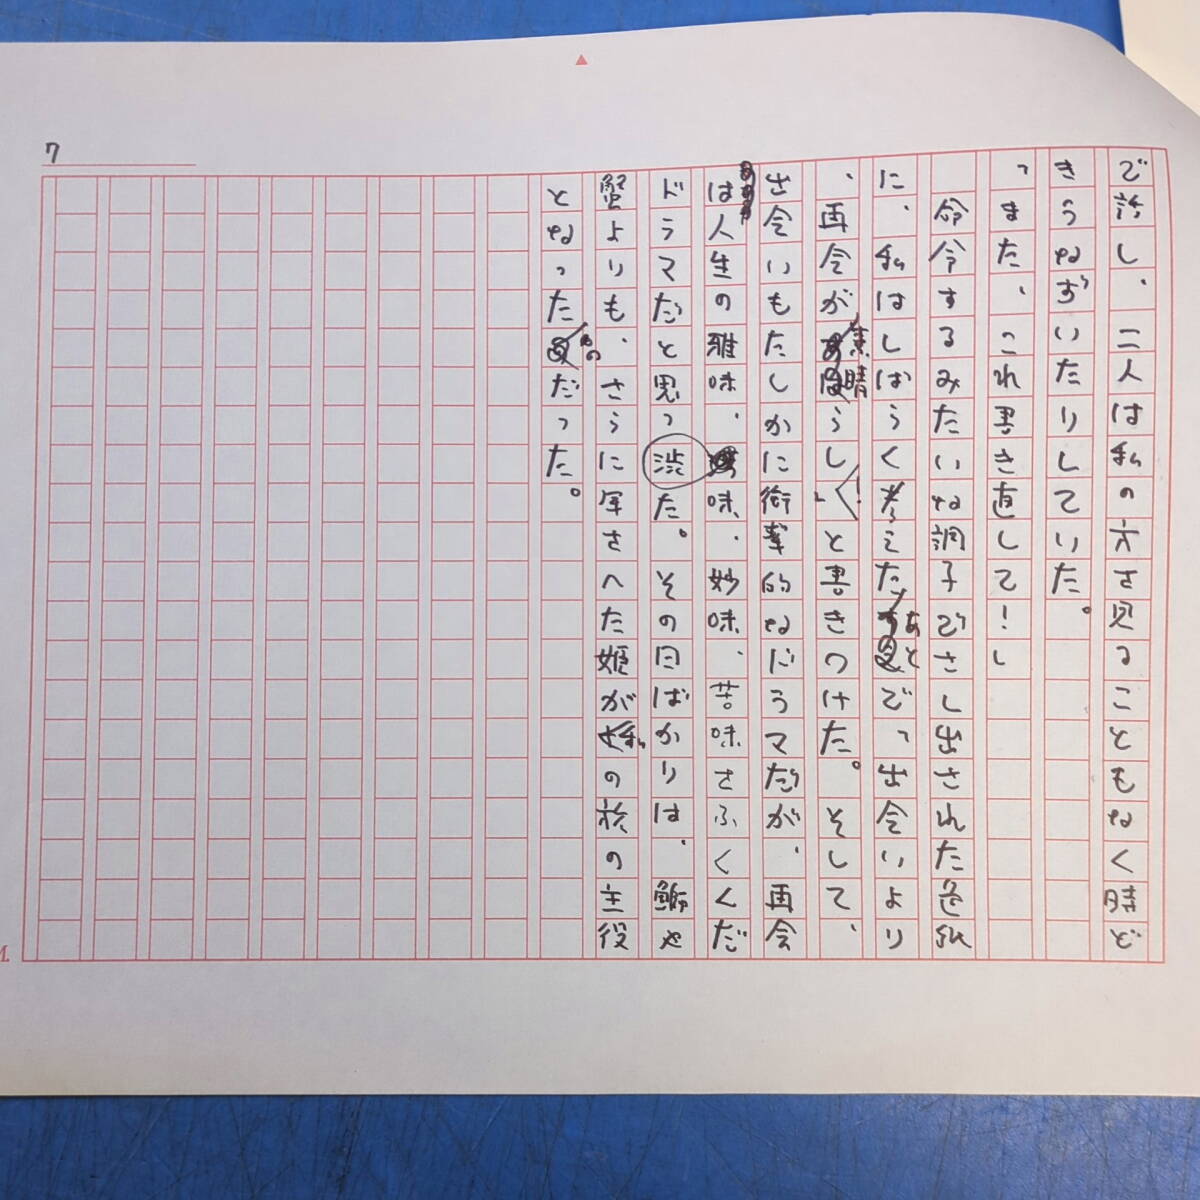 7
で話し、二人は私の方さ見ることもなく時ど
きうなずいたりしていた。
「また、これ書き直して!」
命令するみたいな調子でさし出された色紙
に、私はしばらく考えたあとで「出会いより
、再会が素晴らしい!」と書きつけた。そして、
出会いもたしかに衝撃的なドラマだが、再会
は人生の雅味、渋味、妙味、苦味さふくんだ
ドラマだと思った。その日ばかりは、鰤や
蟹よりも、さらに年さへた姫が私の旅の主役
となったのだった。